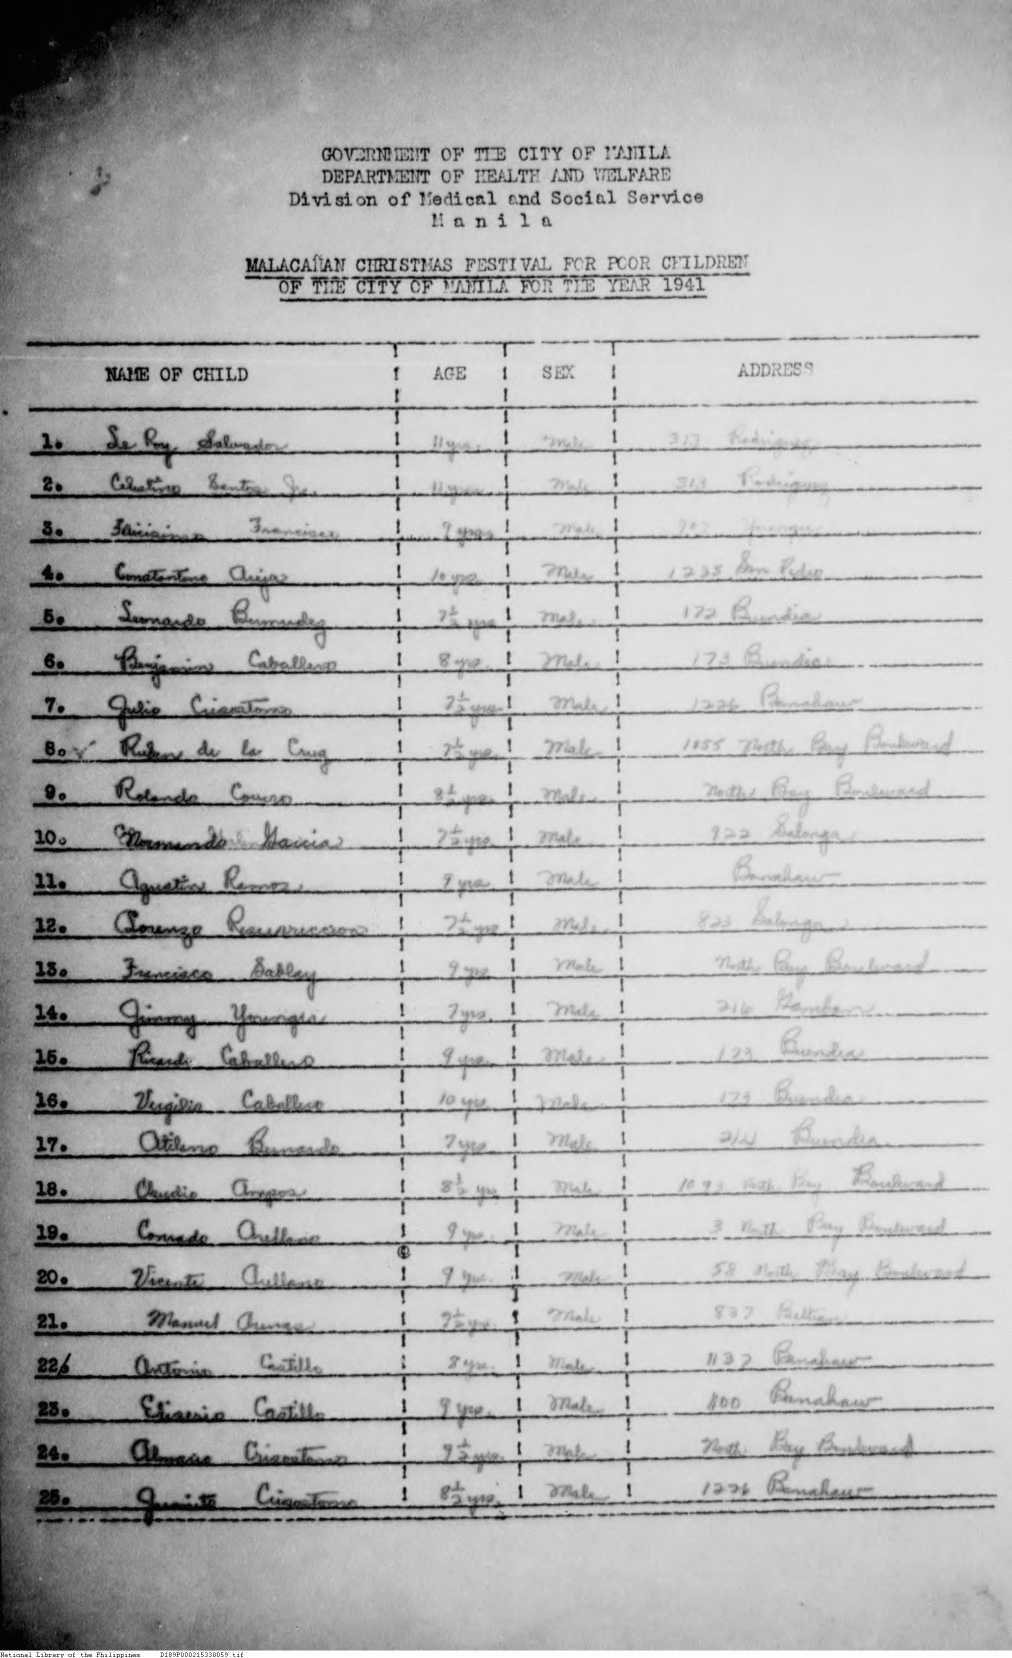 GOVERNMENT OF THE CITY OF MANILA
DEPARTMENT OF HEALTH AND WELFARE
Division of Medical and Social Service
M a n i l a
MALACAÑAN CHRISTMAS FESTIVAL FOR POOR CHILDREN
OF THE CITY OF MANILA FOR THE YEAR 1941
NAME OF CHILD AGE SEX ADDRESS
1. Le Roy Salvador 11 yrs. Male 313 Rodriguez
2. Celestino Santos Jr. 11 yrs Male 313 Rodriguez
3. Francisco 9 yrs Male
4. Constantino 10 yrs Male 1235 San Pedro
5. Leonardo Bermudez 7½ yrs Male 172 Buendia
6. Benjamin Caballero 8 yrs. Male 173 Buendia
7. Julio Crisostomo 7½ yrs. Male 1226 Banahaw
8. Ruben de la Cruz 7½ yrs. Male 1055 North Bay Boulevard
9. Rolando 8½ yrs. Male North Bay Boulevard
10. Normando Garcia 7½ yrs Male 922 Salonga
11. Agustin Ramos 9 yrs Male Banahaw
12. Lorenzo Resurreccion 7½ yrs Male 823 Salonga
13. Francisco Sablay 9 yrs Male North Bay Boulevard
14. Jimmy 7 yrs. Male 216
15. Ricardo Caballero 9 yrs. Male 173 Buendia
16. Vergilio Caballero 10 yrs Male 173 Buendia
17. Atilano Bernardo 7 yrs Male Buendia
18. Claudio Ampos 8½ yrs Male 1093 North Bay Boulevard
19. Conrado Arellano 9 yrs. Male 3 North Bay Boulevard
20. Vicente Arellano 9 yrs. Male 58 North Bay Boulevard
21. Manuel Arenas 7½ yrs. Male 837 Beltran
22. Antonio Castillo 8 yrs. Male 1137 Banahaw
23. Eliserio Castillo 9 yrs. Male 1100 Banahaw
24. Almario Crisostomo 9½ yrs. Male North Bay Boulevard
25. Juanito Crisostomo 8½ yrs. Male 1226 Banahaw
National Library of the Philippines D189P000215338059.tif